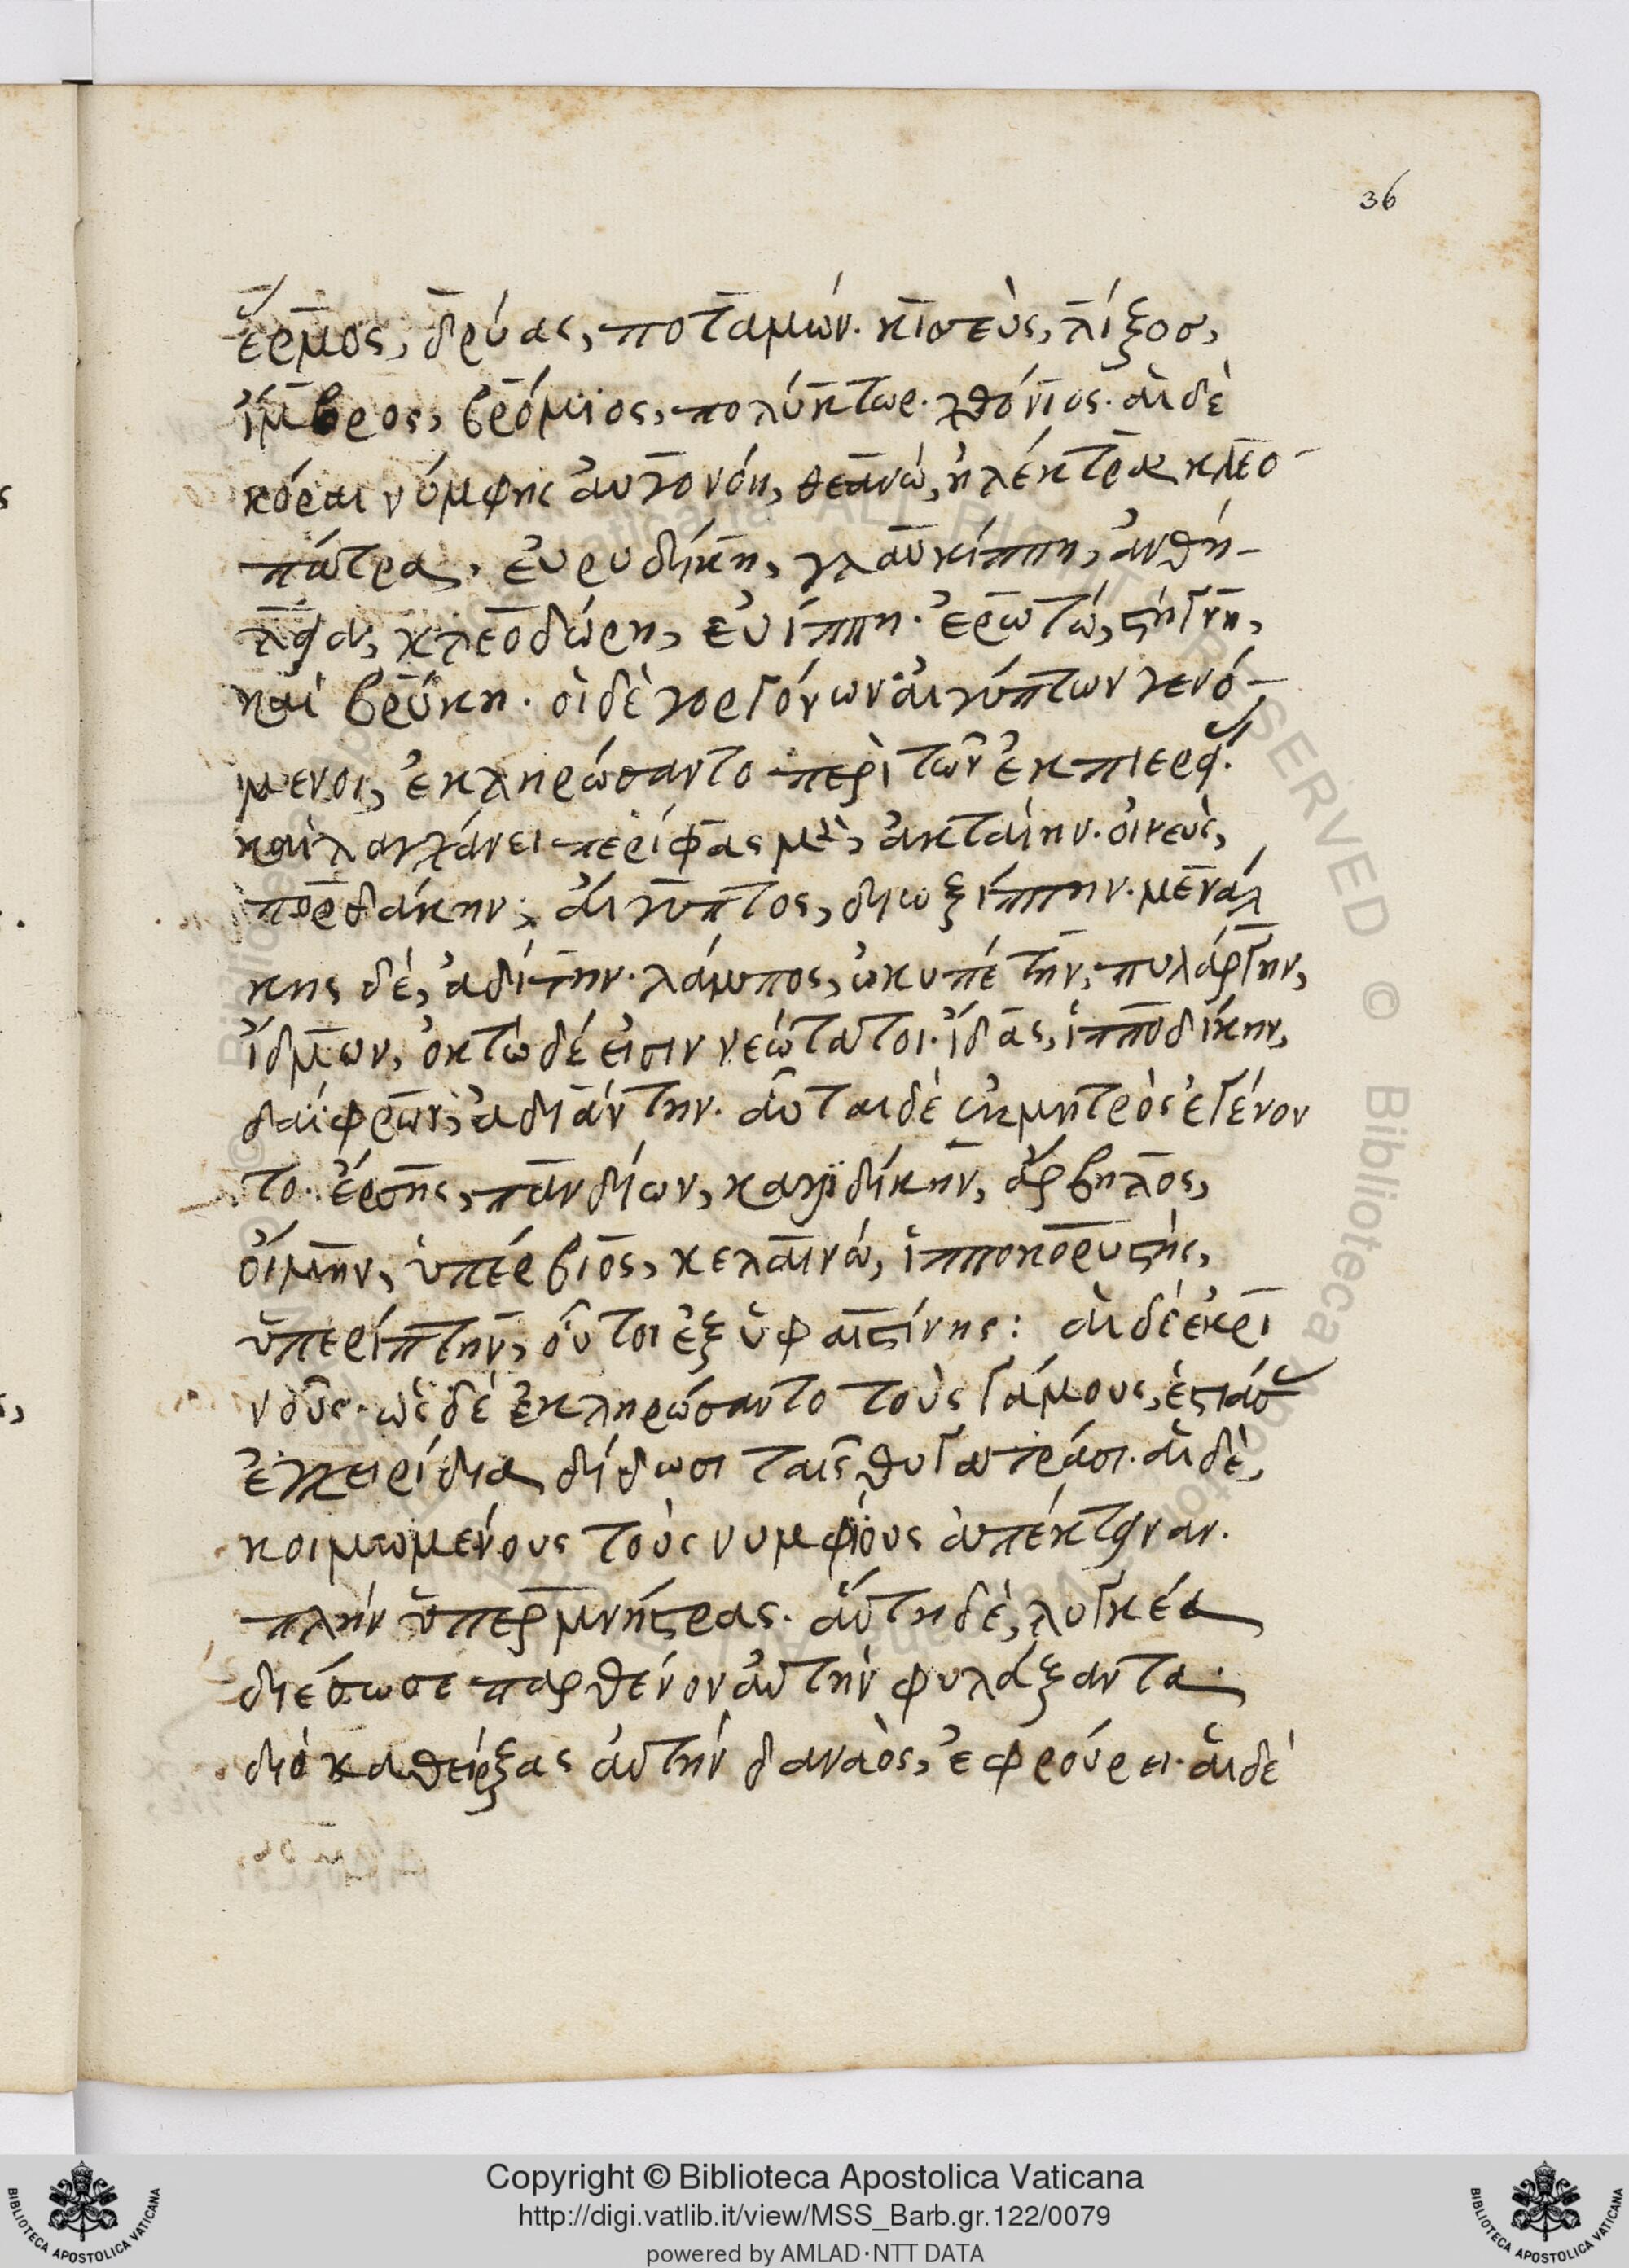 36
ἕρμος, δρύας, ποταμών. κισεὺς, λίξος,
ἴμβρος, βρόμιος, πολύκτωρ. χθόνιος. αἱ δὲ
κόραι νύμφης αὐτονόη, θεανώ, ἠλέκτρα κλεο
πάτρα. εὐρυδίκη, γλαυκίππη, ἀνθή-
λεια, κλεοδώρη, εὐίππη. ἐρωτώ, στύγνη,
καὶ βρύκη. οἱ δὲ γοργόνων αἰγύπτων γενό-
μενοι, ἐκληρώσαντο περὶ τῶν ἐκ πιερείας.
καὶ λαγχάνει περίφας μὲν, ἀκταίην. οἰνεὺς,
ποδάρκην, αἴγυπτος, διωξίππην. μενάλ
κης δὲ, ἀδίτην. λάμπος, ὠκυπέτην, πυλάργην,
ἴδμων, ὀκτὼ δέ εἰσιν νεώτατοι. ἴδας, ἱπποδίκην,
δαΐφρων, ἀδιάντην. αὗται δὲ ἐκ μητρὸς ἐγένον
το. ἕρσης, πανδίων, καλιδίκην, ἄρβηλος,
οἴμην, ὑπέρβιος, κελαινώ, ἱπποκορυστής,
ὑπερίππην, οὗτοι ἐξ ὑφαιστίνης: αἱ δὲ ἐκ κρι
νοῦς. ὡς δὲ ἐκληρώσαντο τοὺς γάμους, ἑστιάσας
ἐγχειρίδια δίδωσι ταῖς θυγατράσι. αἱ δὲ,
κοιμωμένους τοὺς νυμφίους ἀπέκτειναν.
πλὴν ὑπερμνήστρας. αὕτη δὲ, λυγκέα
διέσωσε παρθένον αὐτὴν φυλάξαντα.
διὸ καθείρξας αὐτὴν δαναὸς, ἐφρούρει. αἱ δὲ
Copyright © Biblioteca Apostolica Vaticana
http://digi.vatlib.it/view/MSS_Barb.gr.122/0079
powered by AMLAD·NTT DATA
BIBLIOTECA APOSTOLICA VATICANA
BIBLIOTECA APOSTOLICA VATICANA